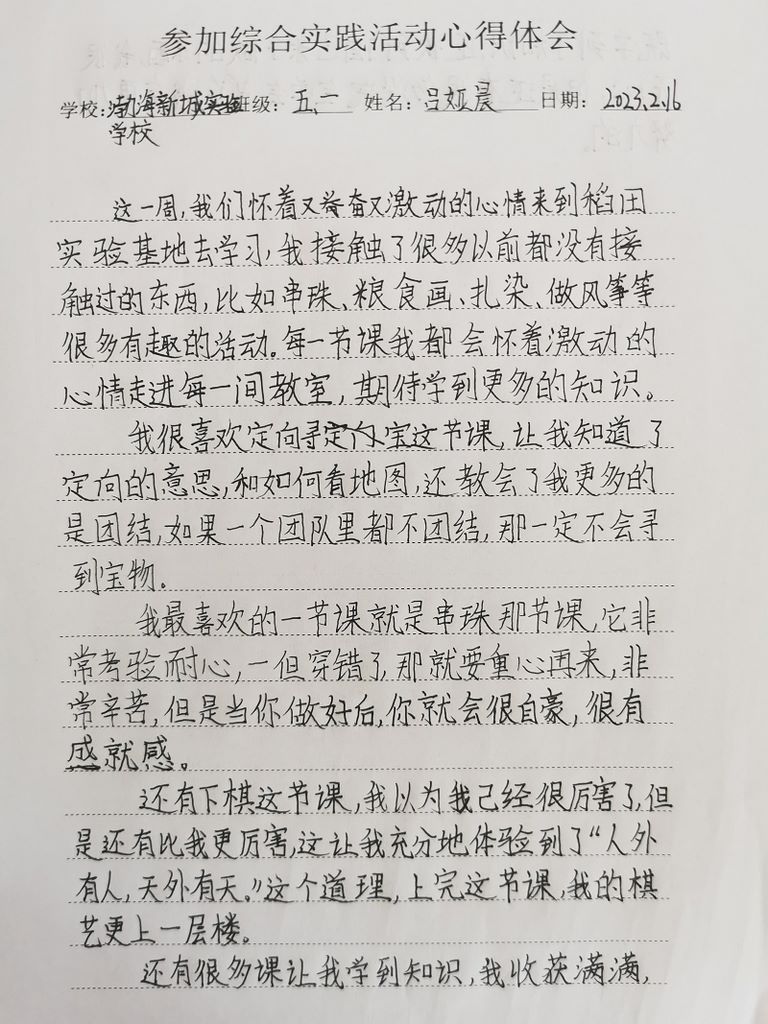 参加综合实践活动心得体会
学校：渤海新城实验班级：五、一 姓名：吕娅晨 日期：2023.2.16
学校
这一周，我们怀着又兴奋又激动的心情来到稻田
实验基地去学习，我接触了很多以前都没有接
触过的东西，比如串珠、粮食画、扎染、做风筝等
很多有趣的活动。每一节课我都会怀着激动的
心情走进每一间教室，期待学到更多的知识。
我很喜欢定向寻宝这节课，让我知道了
定向的意思，和如何看地图，还教会了我更多的
是团结，如果一个团队里都不团结，那一定不会寻
到宝物。
我最喜欢的一节课就是串珠那节课，它非
常考验耐心，一但穿错了，那就要重心再来，非
常辛苦，但是当你做好后，你就会很自豪，很有
感就感。
还有下棋这节课，我以为我已经很厉害了，但
是还有比我更厉害，这让我充分地体验到了“人外
有人，天外有天。”这个道理，上完这节课，我的棋
艺更上一层楼。
还有很多课让我学到知识，我收获满满，